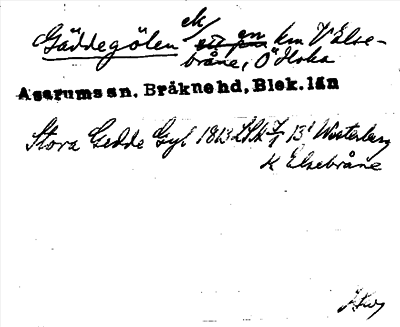 Gäddegölen ek/ en km V Else-
bråne, Ö Hoka
Asarums sn. Bräkne hd, Blek. län
Stora Gedde Gyl 1813 LSK 7/1 13' Westerberg
K Elsebråne